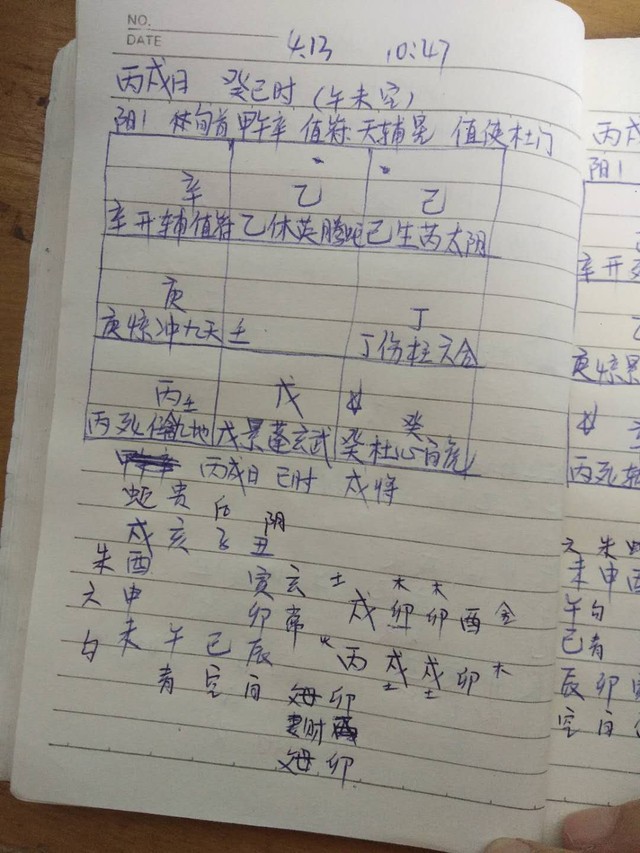 NO.
DATE
4.13 10:47
丙戌日 癸巳时（午未空）
阳1 旬首甲午辛 值符天辅星 值使杜门
辛 乙 己
辛开辅值符 乙休英腾蛇 己生芮太阴
庚 丁
庚惊冲九天 壬 丁伤柱六合
丙 戊 癸
丙死任九地 戊景蓬玄武 癸杜心白虎
丙戌日 巳时 戌将
蛇 贵 后 阴
戌 亥 子 丑
朱 酉 寅 玄 土 木 木
六 申 卯 常 戌 卯 卯 酉 金
勾 未 午 巳 辰 火 丙 戌 戌 卯 木
青 空 白 土 土
父母 卯
妻财 酉
父母 卯
丙戌
阳1
辛开
庚惊
丙死
六 朱 蛇
未 申 酉
午 勾
巳 青
辰 卯
空 白